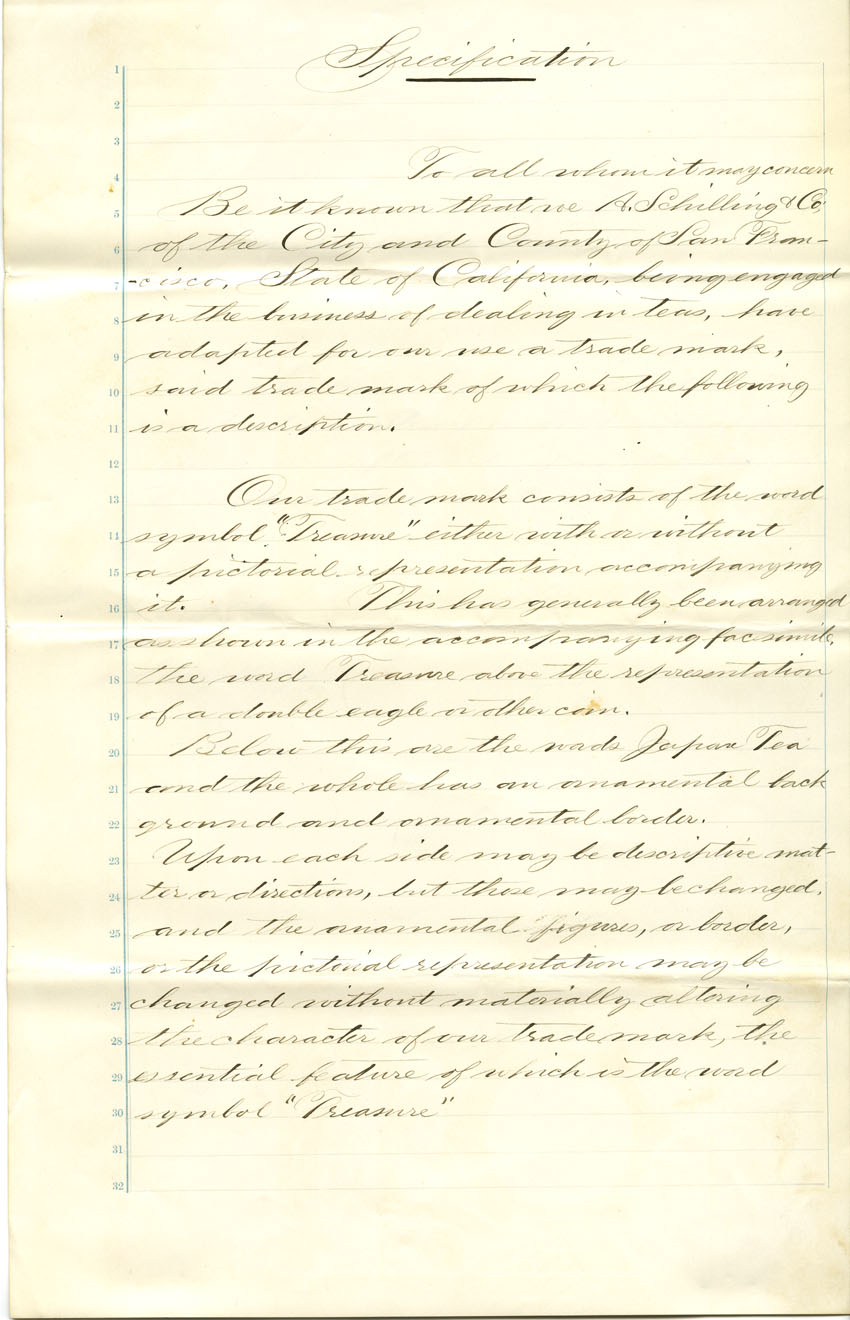 Specification
1
2
3
4 To all whom it may concern
5 Be it known that we A. Schilling & Co.
6 of the City and County of San Fran-
7 -cisco, State of California, being engaged
8 in the business of dealing in teas, have
9 adapted for our use a trade mark,
10 said trade mark of which the following
11 is a description.
12
13 Our trade mark consists of the word
14 symbol "Treasure" either with or without
15 a pictorial representation accompanying
16 it. This has generally been arranged
17 as shown in the accompanying facsimile,
18 the word Treasure above the representation
19 of a double eagle or other coin.
20 Below this are the words Japan Tea
21 and the whole has an ornamental back
22 ground and ornamental border.
23 Upon each side may be descriptive mat-
24 ter or directions, but these may be changed,
25 and the ornamental figures, or border,
26 or the pictorial representation may be
27 changed without materially altering
28 the character of our trade mark, the
29 essential feature of which is the word
30 symbol "Treasure"
31
32